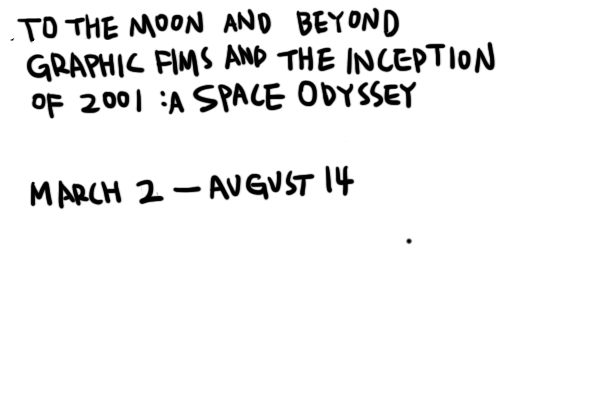 TO THE MOON AND BEYOND
GRAPHIC FIMS AND THE INCEPTION
OF 2001 :A SPACE ODYSSEY
MARCH 2 — AUGUST 14